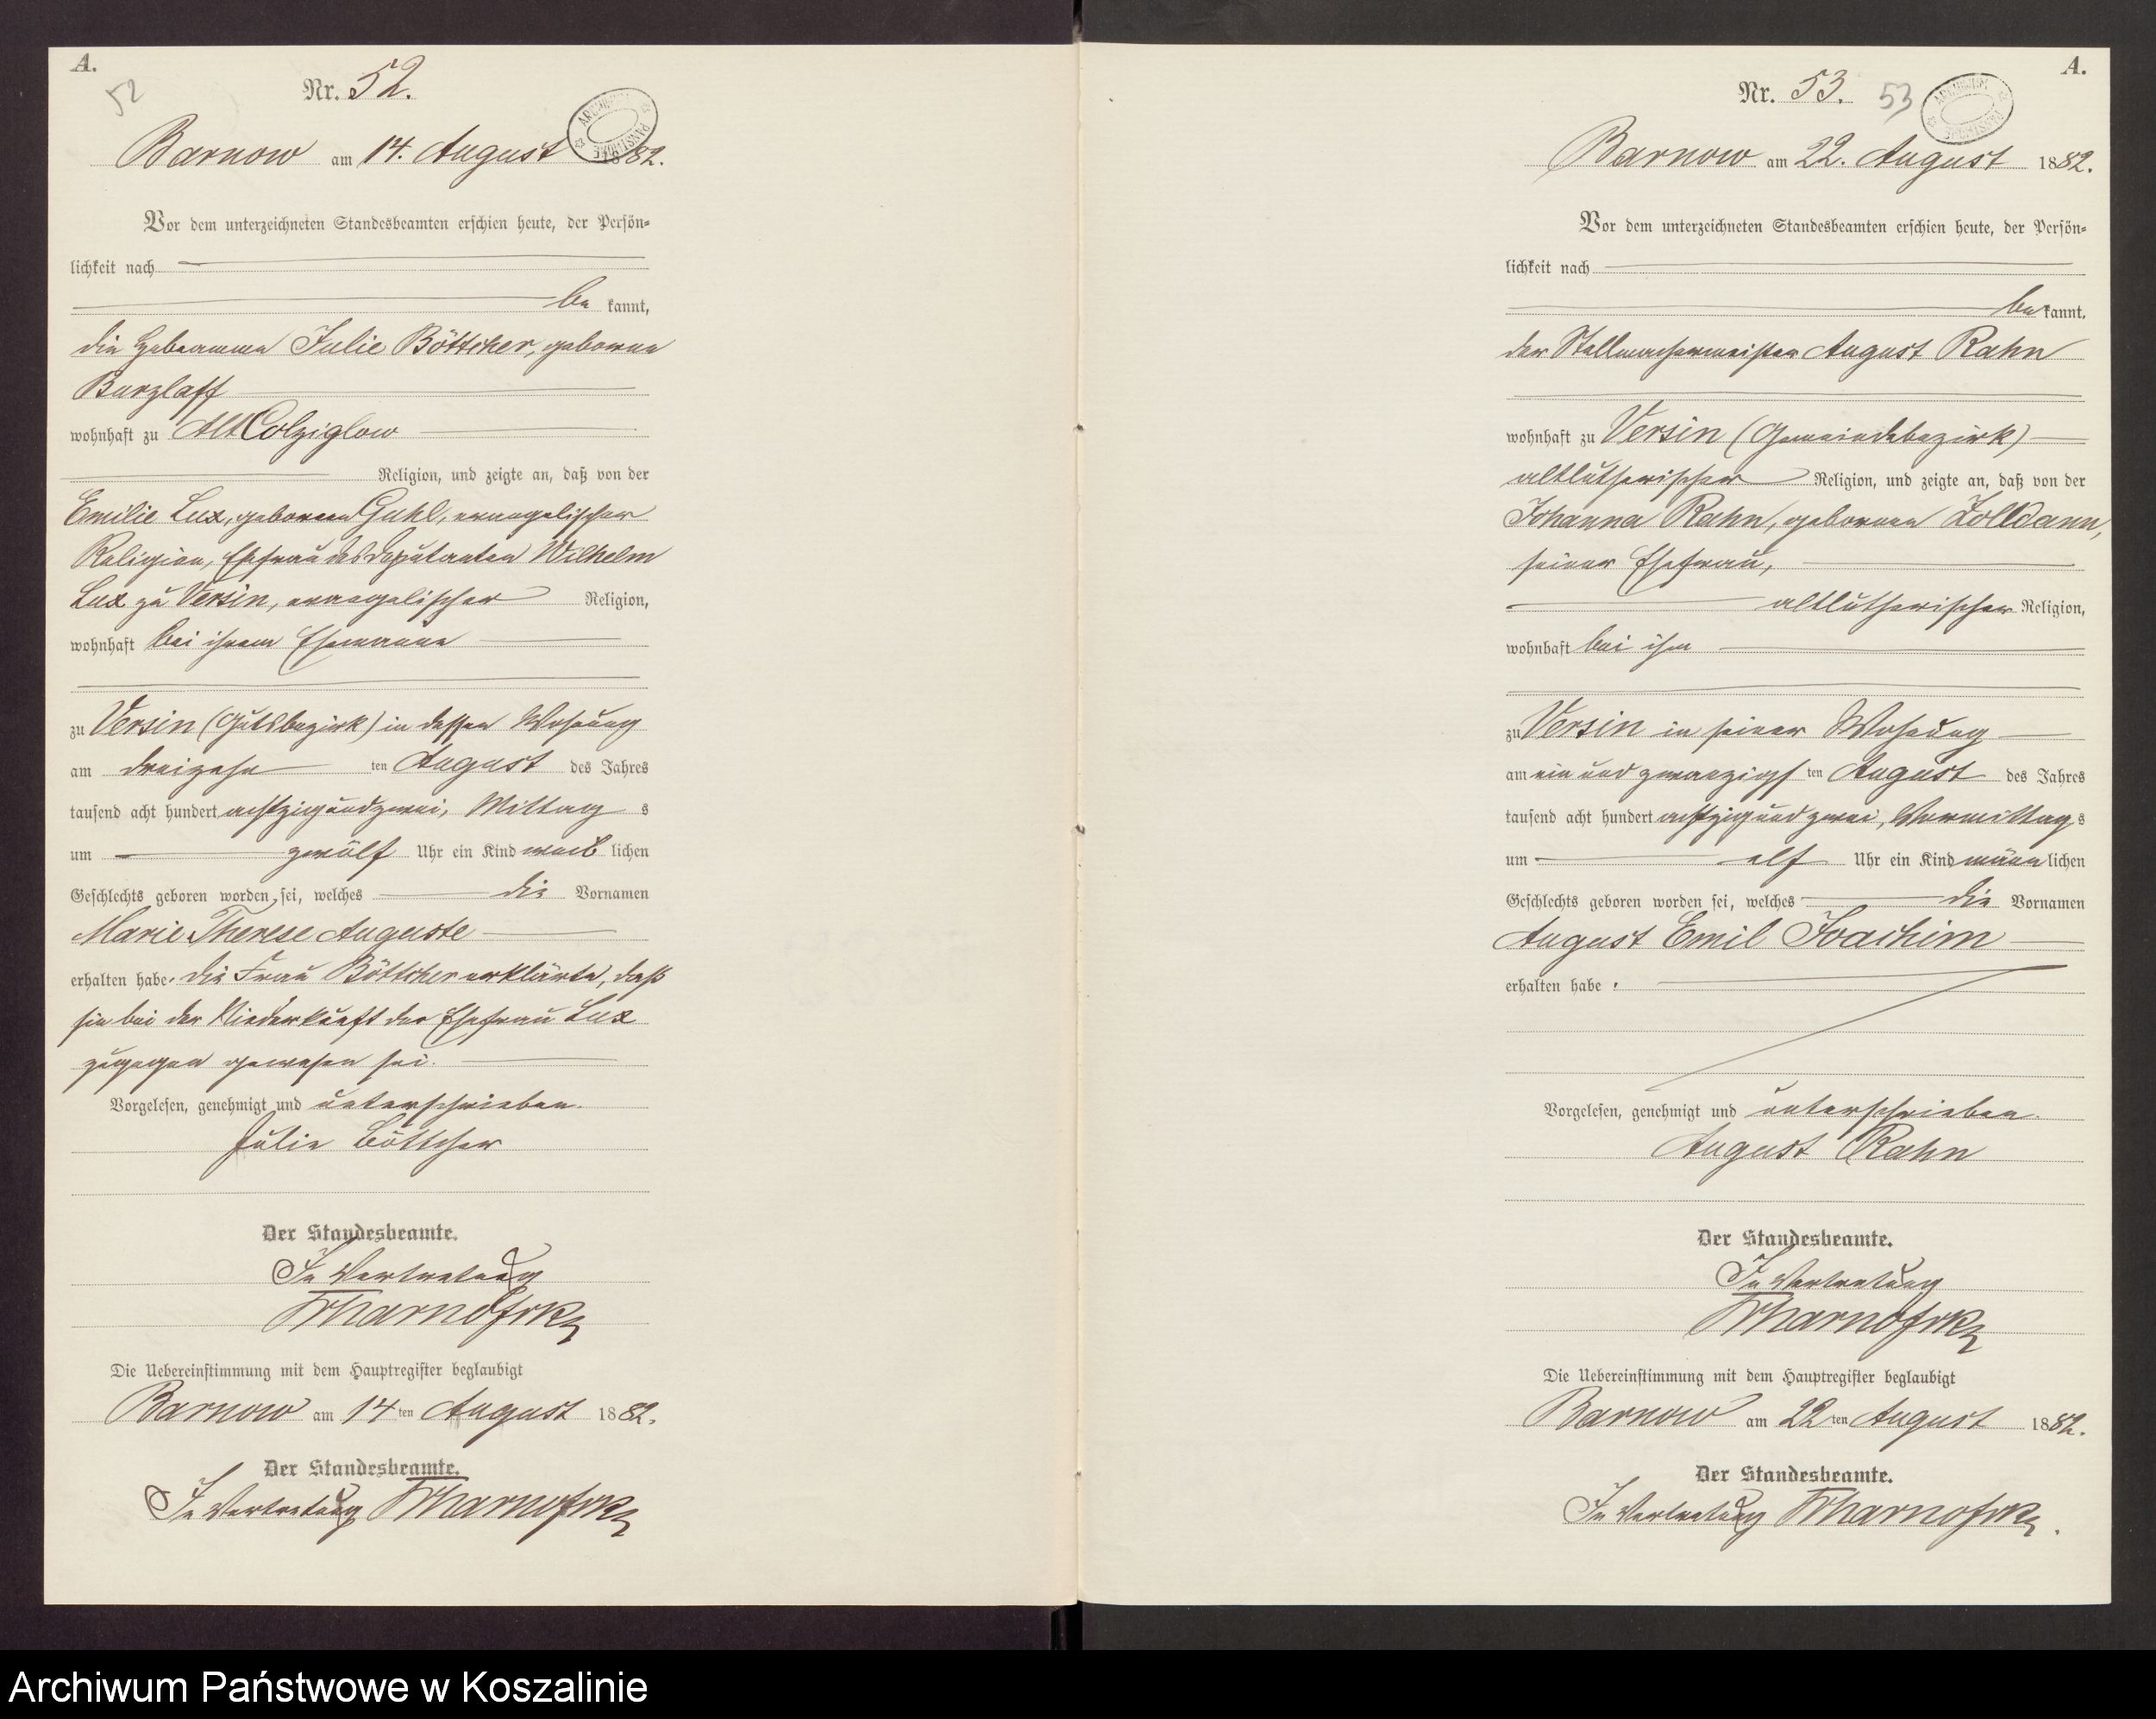 A.
52
Nr. 52.
ARCHIWUM PAŃSTWOWE
Barnow am 14. August 1882.
Vor dem unterzeichneten Standesbeamten erschien heute, der Persön-
lichkeit nach
be kannt,
die Hebeamme Julie Böttcher, geborne
Burzlaff
wohnhaft zu Alt Colziglow
Religion, und zeigte an, daß von der
Emilie Lux, geborene Guhl, evangelischer
Religion, Ehefrau des Deputanten Wilhelm
Lux zu Versin, evangelischer Religion,
wohnhaft bei ihrem Ehemanne
zu Versin (Gutsbezirk) in dessen Wohnung
am dreizehn ten August des Jahres
tausend acht hundert achtzig und zwei, Mittag s
um zwölf Uhr ein Kind weib lichen
Geschlechts geboren worden sei, welches die Vornamen
Marie Therese Auguste
erhalten habe. Die Frau Böttcher erklärte, daß
sie bei der Niederkunft der Ehefrau Lux
zugegen gewesen sei.
Vorgelesen, genehmigt und unterschrieben.
Julie Böttcher
Der Standesbeamte.
In Vertretung
Die Uebereinstimmung mit dem Hauptregister beglaubigt
Barnow am 14 ten August 1882.
Der Standesbeamte.
In Vertretung
A.
Nr. 53. 53
ARCHIWUM PAŃSTWOWE
Barnow am 22. August 1882.
Vor dem unterzeichneten Standesbeamten erschien heute, der Persön-
lichkeit nach
be kannt,
der Stellmachermeister August Rahn
wohnhaft zu Versin (Gemeindebezirk)
altlutherischer Religion, und zeigte an, daß von der
Johanna Rahn, geborenen Zolldann,
seiner Ehefrau,
altlutherischer Religion,
wohnhaft bei ihm
zu Versin in seiner Wohnung
am ein und zwanzigs ten August des Jahres
tausend acht hundert achtzig und zwei, Vormittag s
um elf Uhr ein Kind männ lichen
Geschlechts geboren worden sei, welches die Vornamen
August Emil Joachim
erhalten habe.
Vorgelesen, genehmigt und unterschrieben.
August Rahn
Der Standesbeamte.
In Vertretung
Die Uebereinstimmung mit dem Hauptregister beglaubigt
Barnow am 22 ten August 1882.
Der Standesbeamte.
In Vertretung
Archiwum Państwowe w Koszalinie